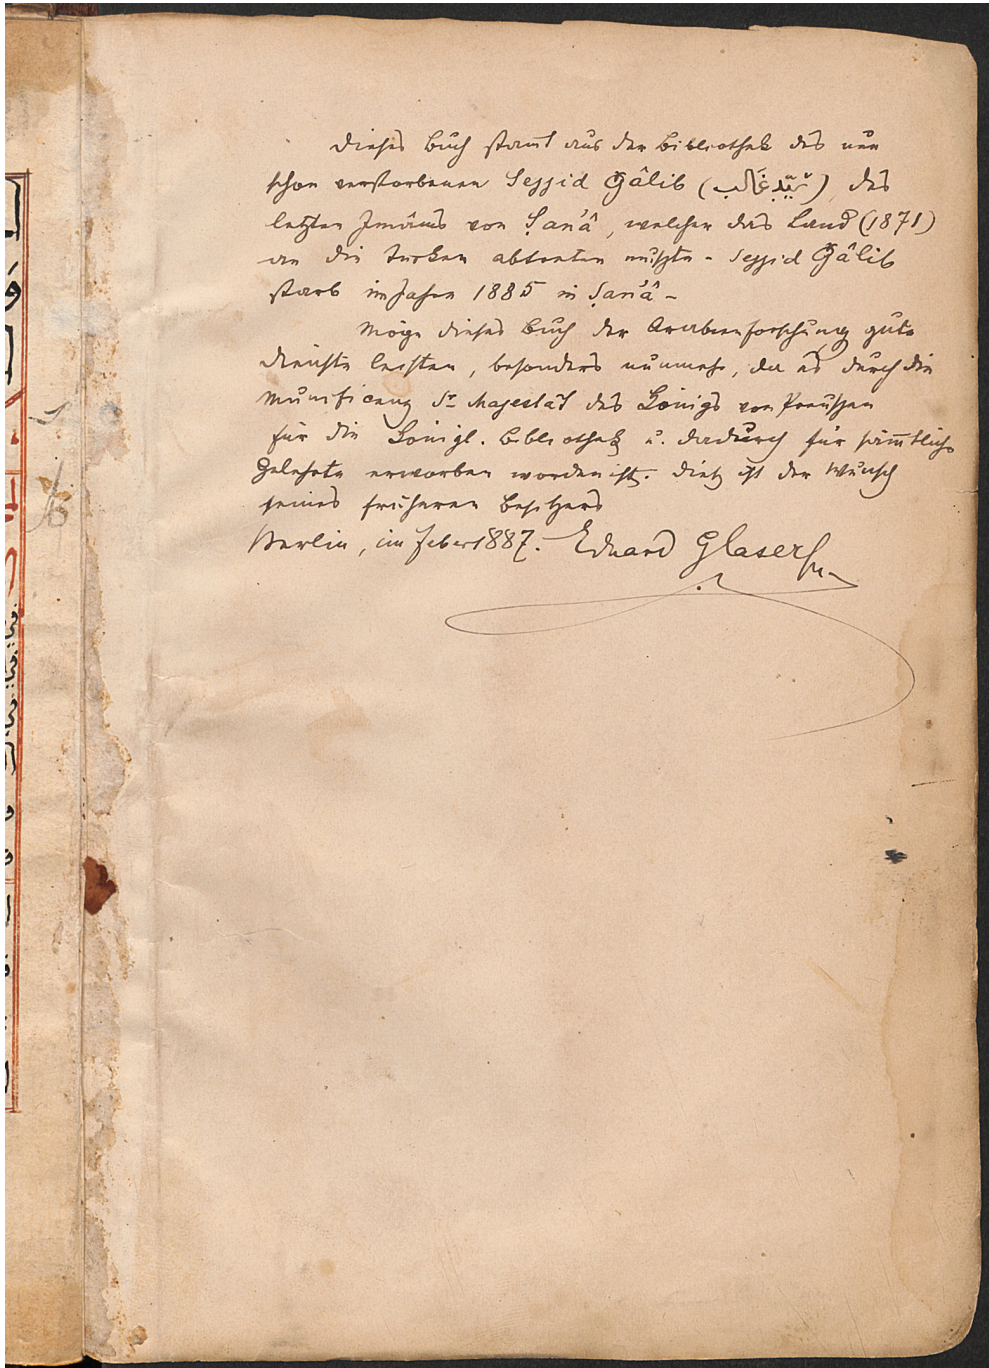 Dieses Buch stammt aus der Bibliothek des nun
schon verstorbenen Sejjid Ġâlib (سيّد غالب), des
letzten Imâms von Ṣan'â, welcher das Land (1871)
an die Türken abtreten mußte – Sejjid Ġâlib
starb im Jahre 1885 in Ṣan'â –
Möge dieses Buch der Arabienforschung gute
Dienste leisten, besonders nunmehr, da es durch die
Munificenz Sr Majestät des Königs von Preußen
für die Königl. Bibliothek u. dadurch für sämmtliche
Gelehrte erworben worden ist. Dieß ist der Wunsch
seines früheren Besitzers
Berlin, im Feber 1887. Eduard Glaser